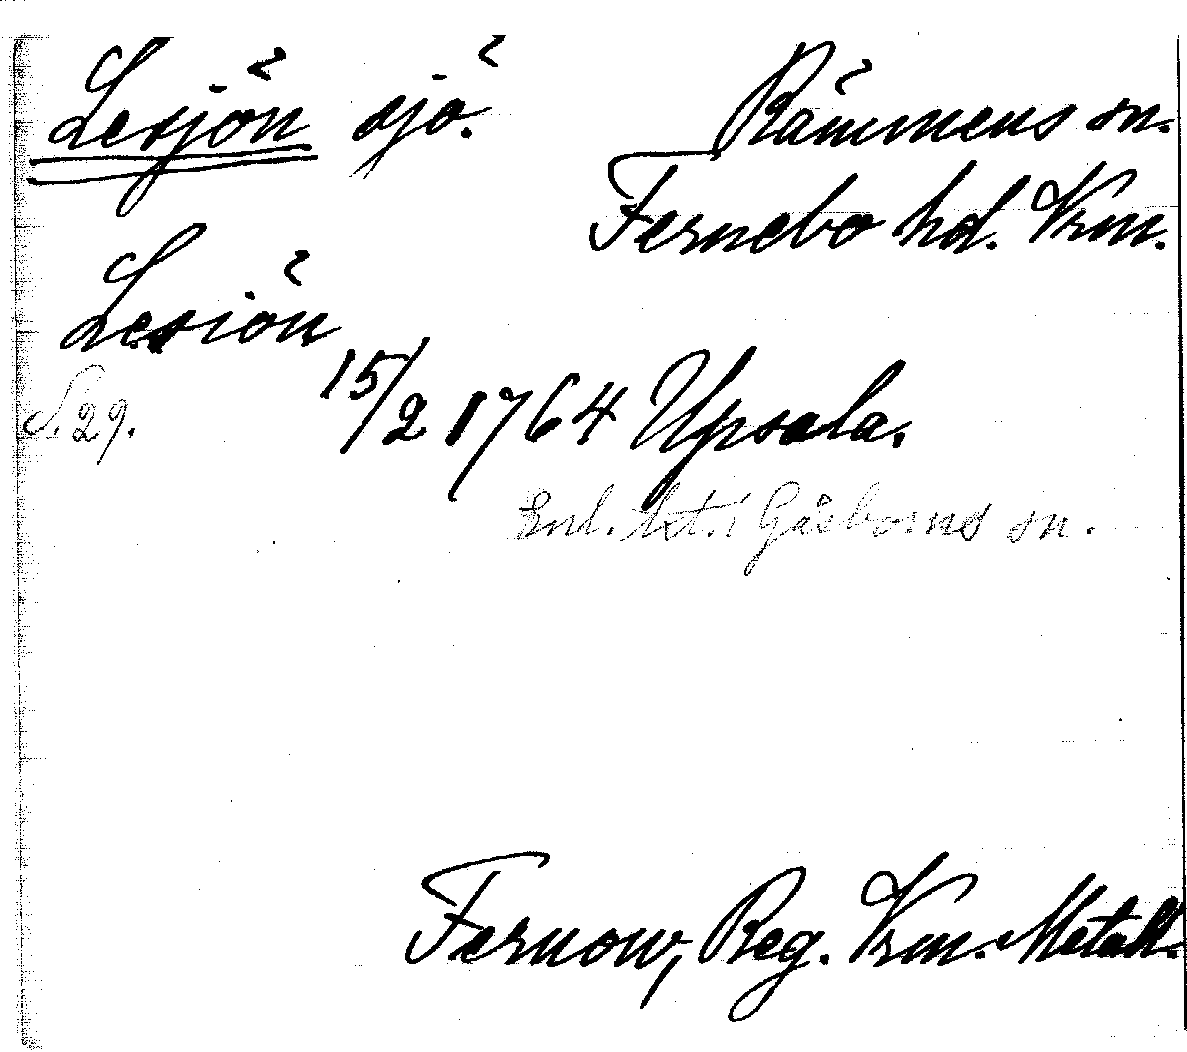 Lesjön sjö. Rämmens sn.
Fernebo hd. Vrm.
Lesiön
15/2 1764 Upsala.
S. 29.
Enl. kt. i Gåsborns sn.
Fernow, Reg. Vrm. Metall.